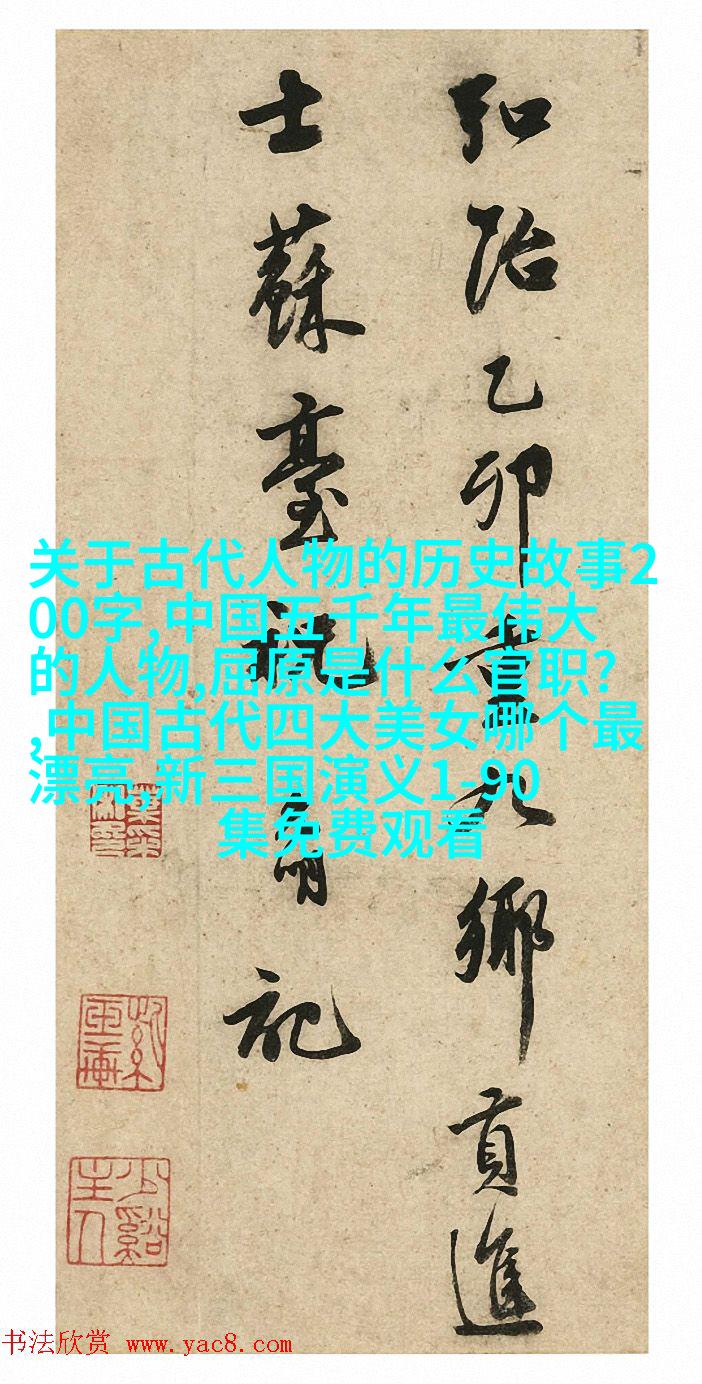 弘治乙卯鄉貢進
士蘇臺祝明記
关于古代人物的历史故事2
00字,中国五千年最伟大
的人物,屈原是什么官职?
,中国古代四大美女哪个最
漂亮,新三国演义1-90
集免费观看
少谿主人
书法欣赏 www.yac8.com